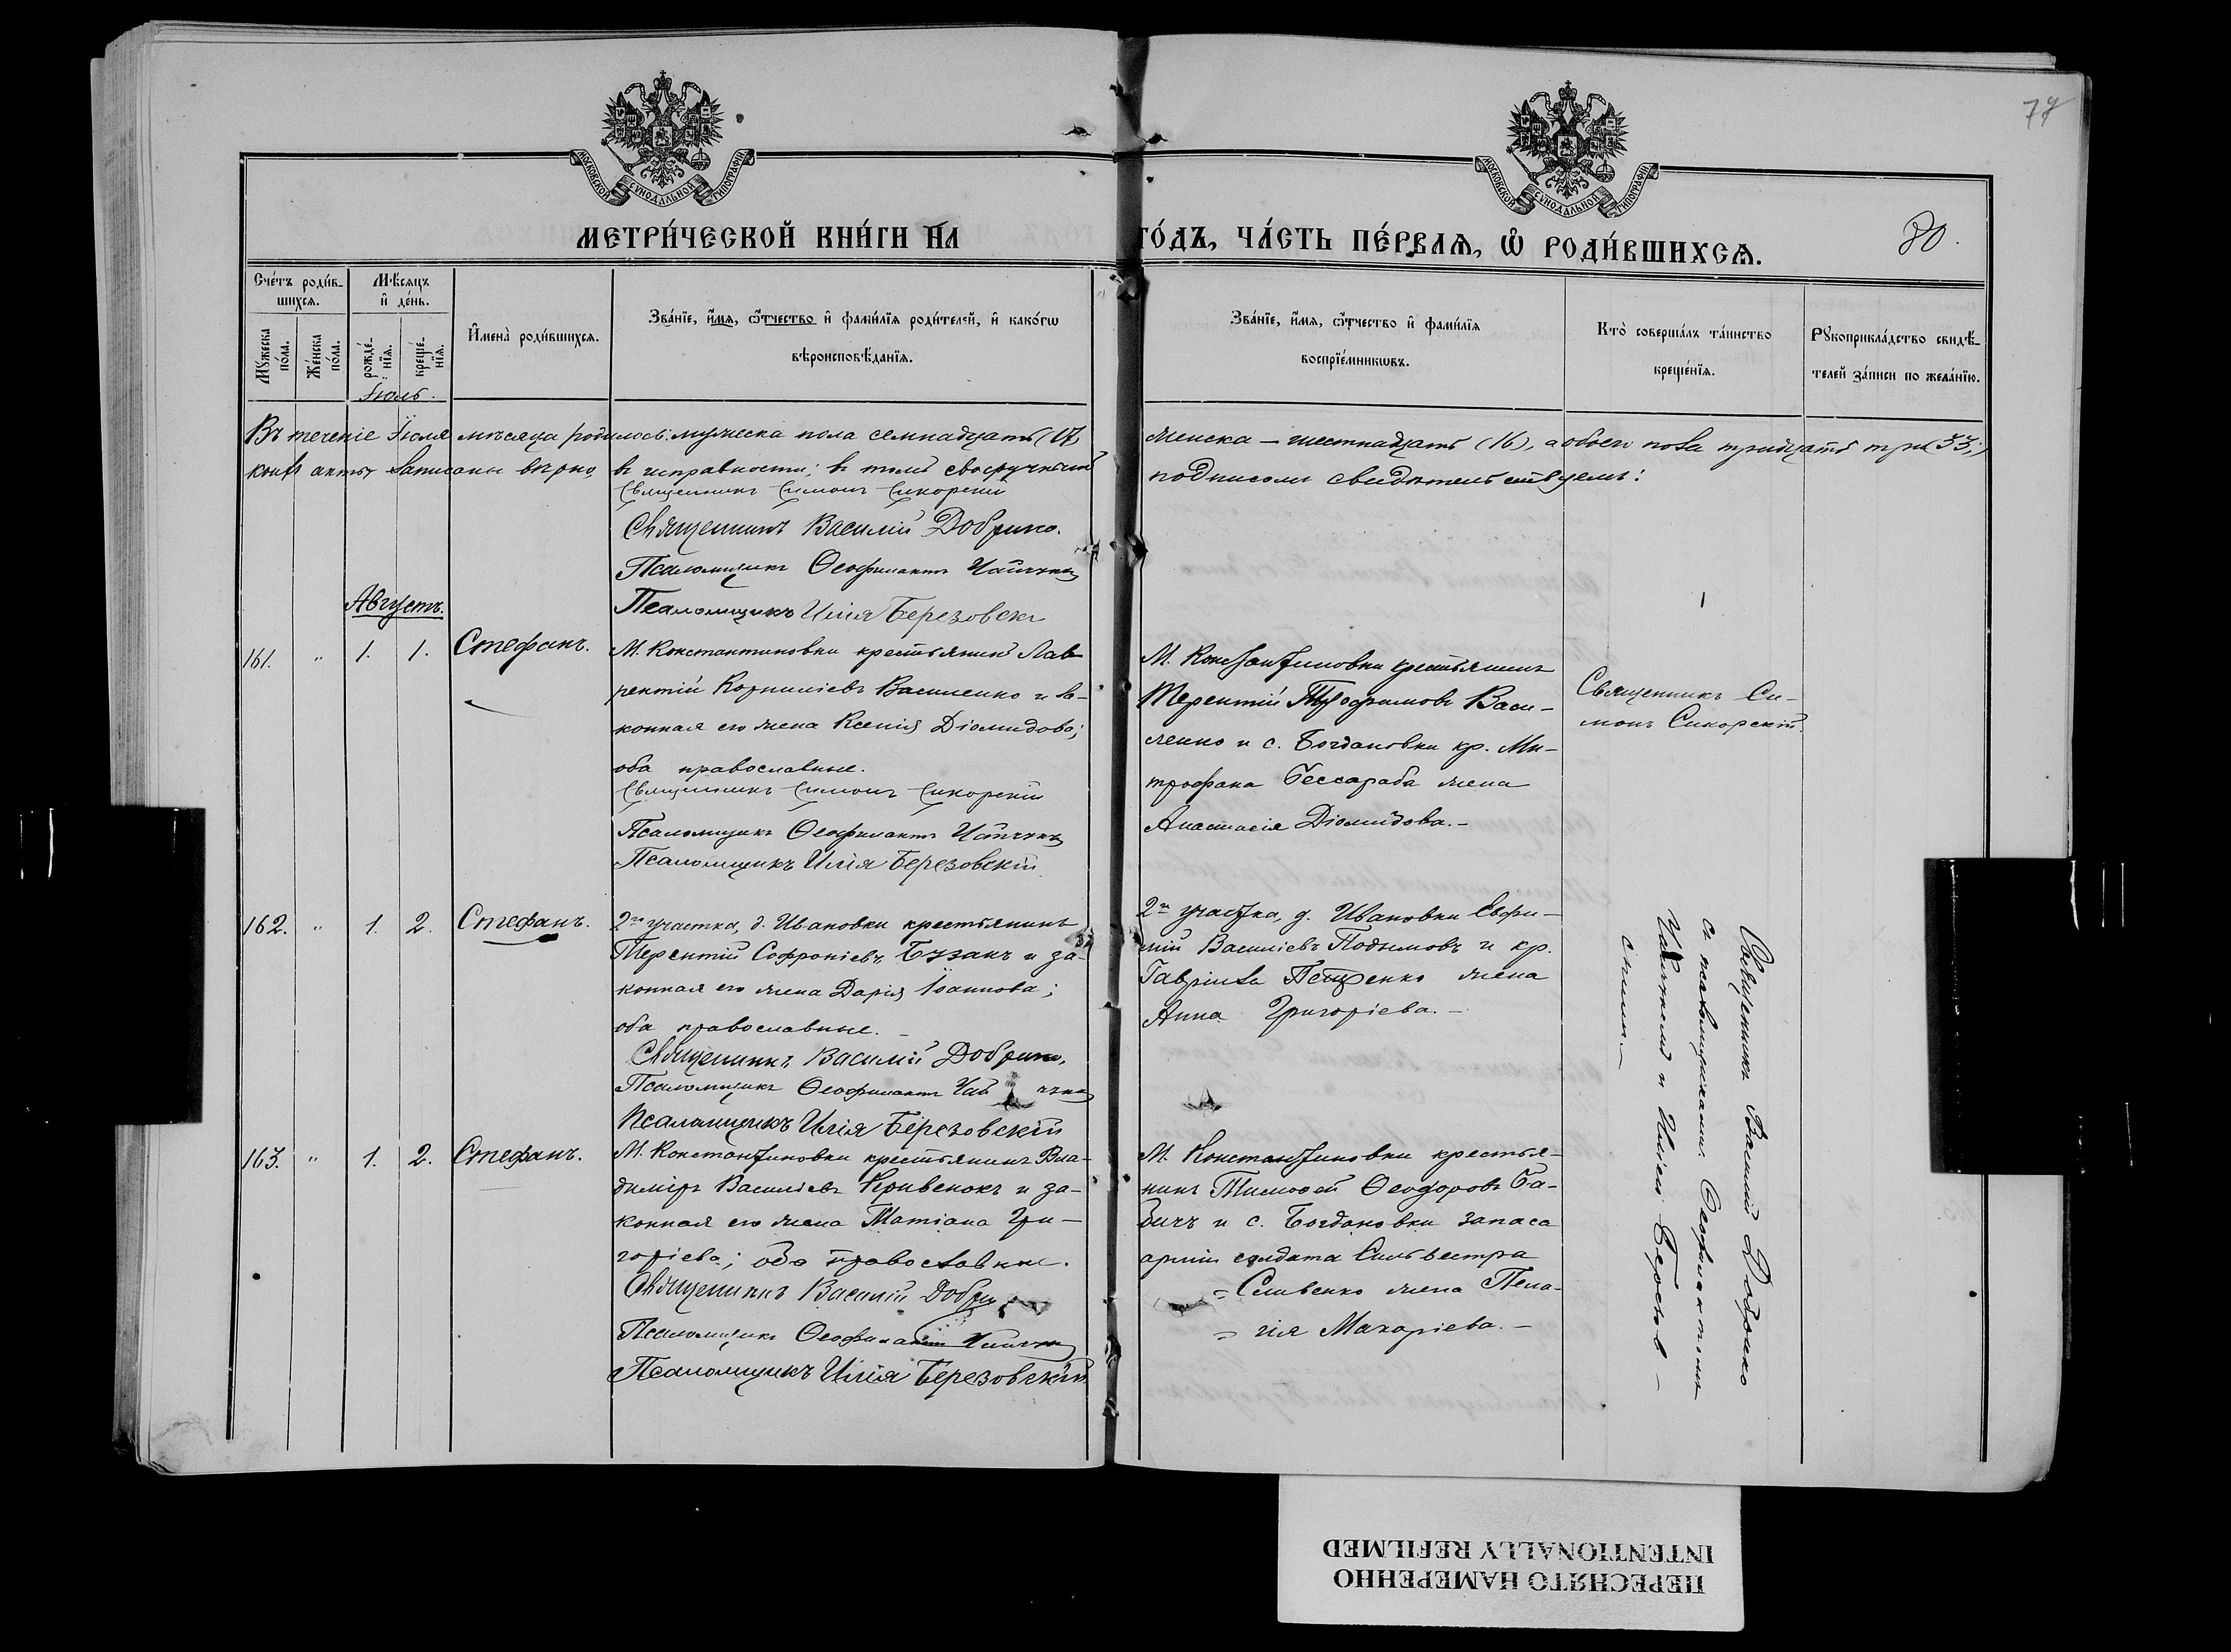 77
МОСКОВСКОЙ СѴНОДАЛЬНОЙ ТИПОГРАФІИ
МОСКОВСКОЙ СѴНОДАЛЬНОЙ ТИПОГРАФІИ
МЕТРИ́ЧЕСКОЙ КНИ́ГИ НА
ГО́ДЪ, ЧА́СТЬ ПЕ́РВАѦ, Ѿ РОДИ́ВШИХСѦ.
80.
Сче́тъ роди́в-
шихсѧ.
Мѣ́сѧцъ
и҆ де́нь.
Мꙋ́жеска
по́ла.
Же́нска
по́ла.
рожде́-
нїѧ.
креще́-
нїѧ.
Іюль.
И҆мена̀ роди́вшихсѧ.
Зва́нїе, и҆́мѧ, ѻ҆́тчество и҆ фами́лїѧ роди́телей, и҆ како́гѡ
вѣроисповѣ́данїѧ.
Зва́нїе, и҆́мѧ, ѻ҆́тчество и҆ фами́лїѧ
воспрїе́мникѡвъ.
Кто̀ соверша́лъ та́инство
креще́нїѧ.
Рꙋкоприкла́дство свидѣ́-
телей за́писи по жела́нїю.
Въ теченіе Іюля мѣсяца родилось: мужеска пола семнадцать (17)
женска — шестнадцать (16), а обоего пола тридцать три (33;)
акты записаны вѣрно, въ исправности; въ томъ своеручнымъ
подписомъ свидѣтельствуемъ:
Священникъ Симонъ Сикорскій
Священникъ Василій Добрино.
Псаломщикъ Ѳеофилактъ
Псаломщикъ Илія Березовск
Августъ.
161. " 1. 1. Стефанъ.
М. Константиновки крестьянинъ Лав-
рентій Корниліевъ Василенко и за-
конная его жена Ксенія Діомидова;
оба православные.
Священникъ Симонъ Сикорскій
Псаломщикъ Ѳеофилактъ
Псаломщикъ Илія Березовскій
М. Константиновки крестьянинъ
Терентій Васи-
ленко и с. Богдановки кр. Ми-
трофана Бессараба жена
Анастасія Діомидова.-
Священникъ Си-
монъ Сикорскій.
162. " 1. 2. Стефанъ.
2го участка, д. Ивановки крестьянинъ
Терентій Софроніевъ Бузакъ и за-
конная его жена Дарія Іоаннова;
оба православные. -
Священникъ Василій Добрино,
Псаломщикъ Ѳеофилактъ
Псаломщикъ Илія Березовскій
2го участка, д. Ивановки Евфи-
мій Василіевъ Подымовъ и кр.
Гавріила жена
Анна Григоріева. -
Священникъ Василій
съ псаломщиками: Ѳеофилактомъ
и Иліею Березов-
скимъ. -
163. " 1. 2. Стефанъ.
М. Константиновки крестьянинъ Вла-
диміръ Василіевъ Кривенокъ и за-
конная его жена Татіана Гри-
горіева; оба православные.
Священникъ Василій Добри
Псаломщикъ Ѳеофилактъ
Псаломщикъ Илія Березовскій
М. Константиновки крестья-
нинъ Тимоѳей Ѳеодоровъ Ба-
бичъ и с. Богдановки запаса
арміи солдата Сильвестра
= Сливенко жена Пела-
= гія Макаріева. -
ПЕРЕСНЯТО НАМЕРЕННО
INTENTIONALLY REFILMED